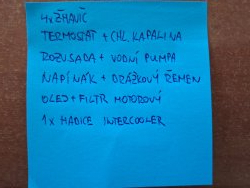 4x ŽHAVIČ
TERMOSTAT + CHL. KAPALINA
ROZVSADA + VODNÍ PUMPA
NAPÍNÁK + DRÁŽKOVÝ ŘEMEN
OLEJ + FILTR MOTOROVÝ
1x HADICE INTERCOOLER